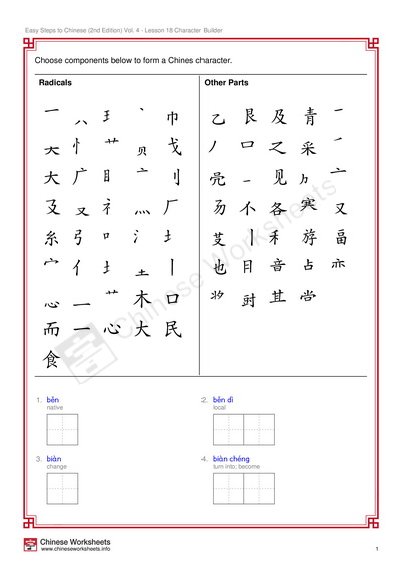 Easy Steps to Chinese (2nd Edition) Vol. 4 - Lesson 18 Character Builder
Choose components below to form a Chines character.
Radicals
亠 王 丶 巾
忄 艹 贝 戈
大 广 目 亠 刂
又 礻 灬 厂
糸 弓 口 氵 土
宀 亻 土 土 丨
心 一 艹 木 口
而 一 心 大 民
食
Other Parts
乙 艮 及 青 一
丿 口 之 采
一 见 亠
易 不 各 又
丨 禾 畐
也 目 音 占 亦
尌 尝
Chinese Worksheets
1. běn
native
2. běn dì
local
3. biàn
change
4. biàn chéng
turn into; become
Chinese Worksheets
www.chineseworksheets.info
1